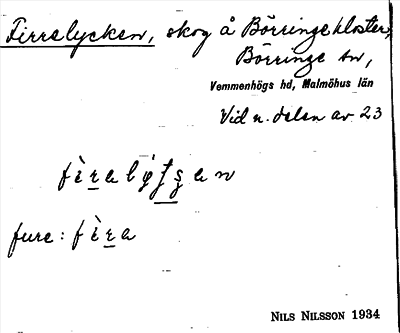 Firrelycken, skog å Börringekloster,
Börringe sn,
Vemmenhögs hd, Malmöhus län
Vid n. delen av 23
fure: fìra
NILS NILSSON 1934